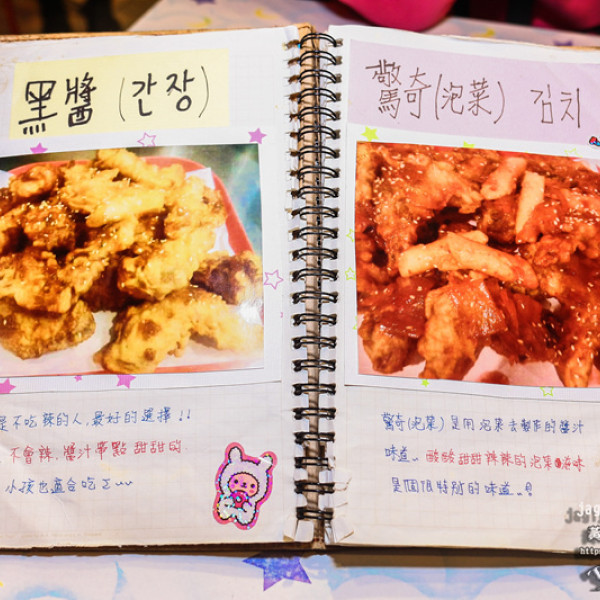 黑醬(간장)
是不吃辣的人,最好的選擇!!
不會辣,醬汁帶點甜甜的
小孩也適合吃ㄛ~~
驚奇(泡菜) 김치
驚奇(泡菜)是用泡菜去製作的醬汁
味道..酸酸甜甜辣辣的泡菜滋味
是個很特別的味道..
jay
http